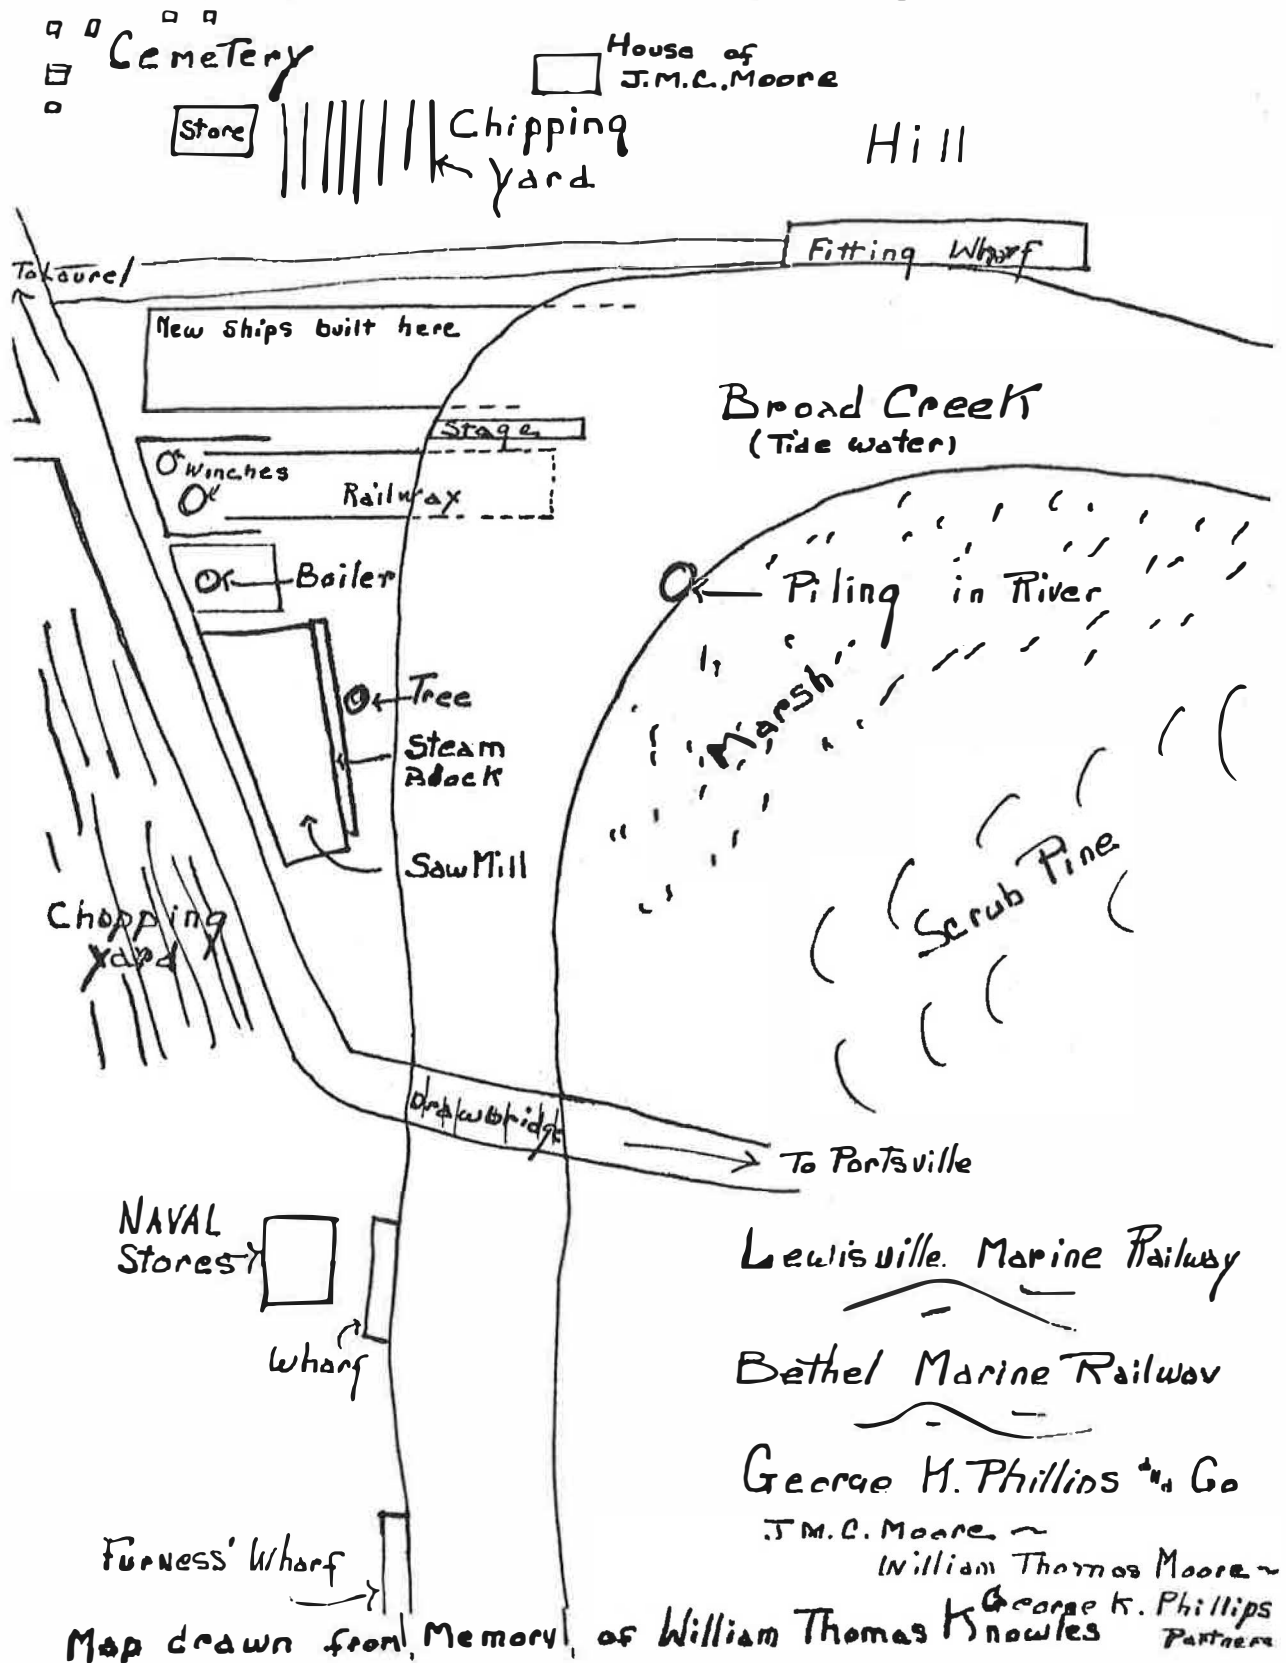 Cemetery
House of
J.M.C. Moore
Store
Chipping
Yard
Hill
To Laurel
Fitting Wharf
New Ships built here
Broad Creek
(Tide water)
Stage
Winches
Railway
Boiler
Piling in River
Tree
Marsh
Steam
Block
Saw Mill
Scrub Pine
Chopping
Yard
Drawbridge
To Portsville
NAVAL
Stores
Wharf
Lewisville Marine Railway
Bethel Marine Railway
George H. Phillips and Co
J M.C. Moore ~
William Thomas Moore ~
George K. Phillips
Partners
Furness' Wharf
Map drawn from Memory of William Thomas Knowles